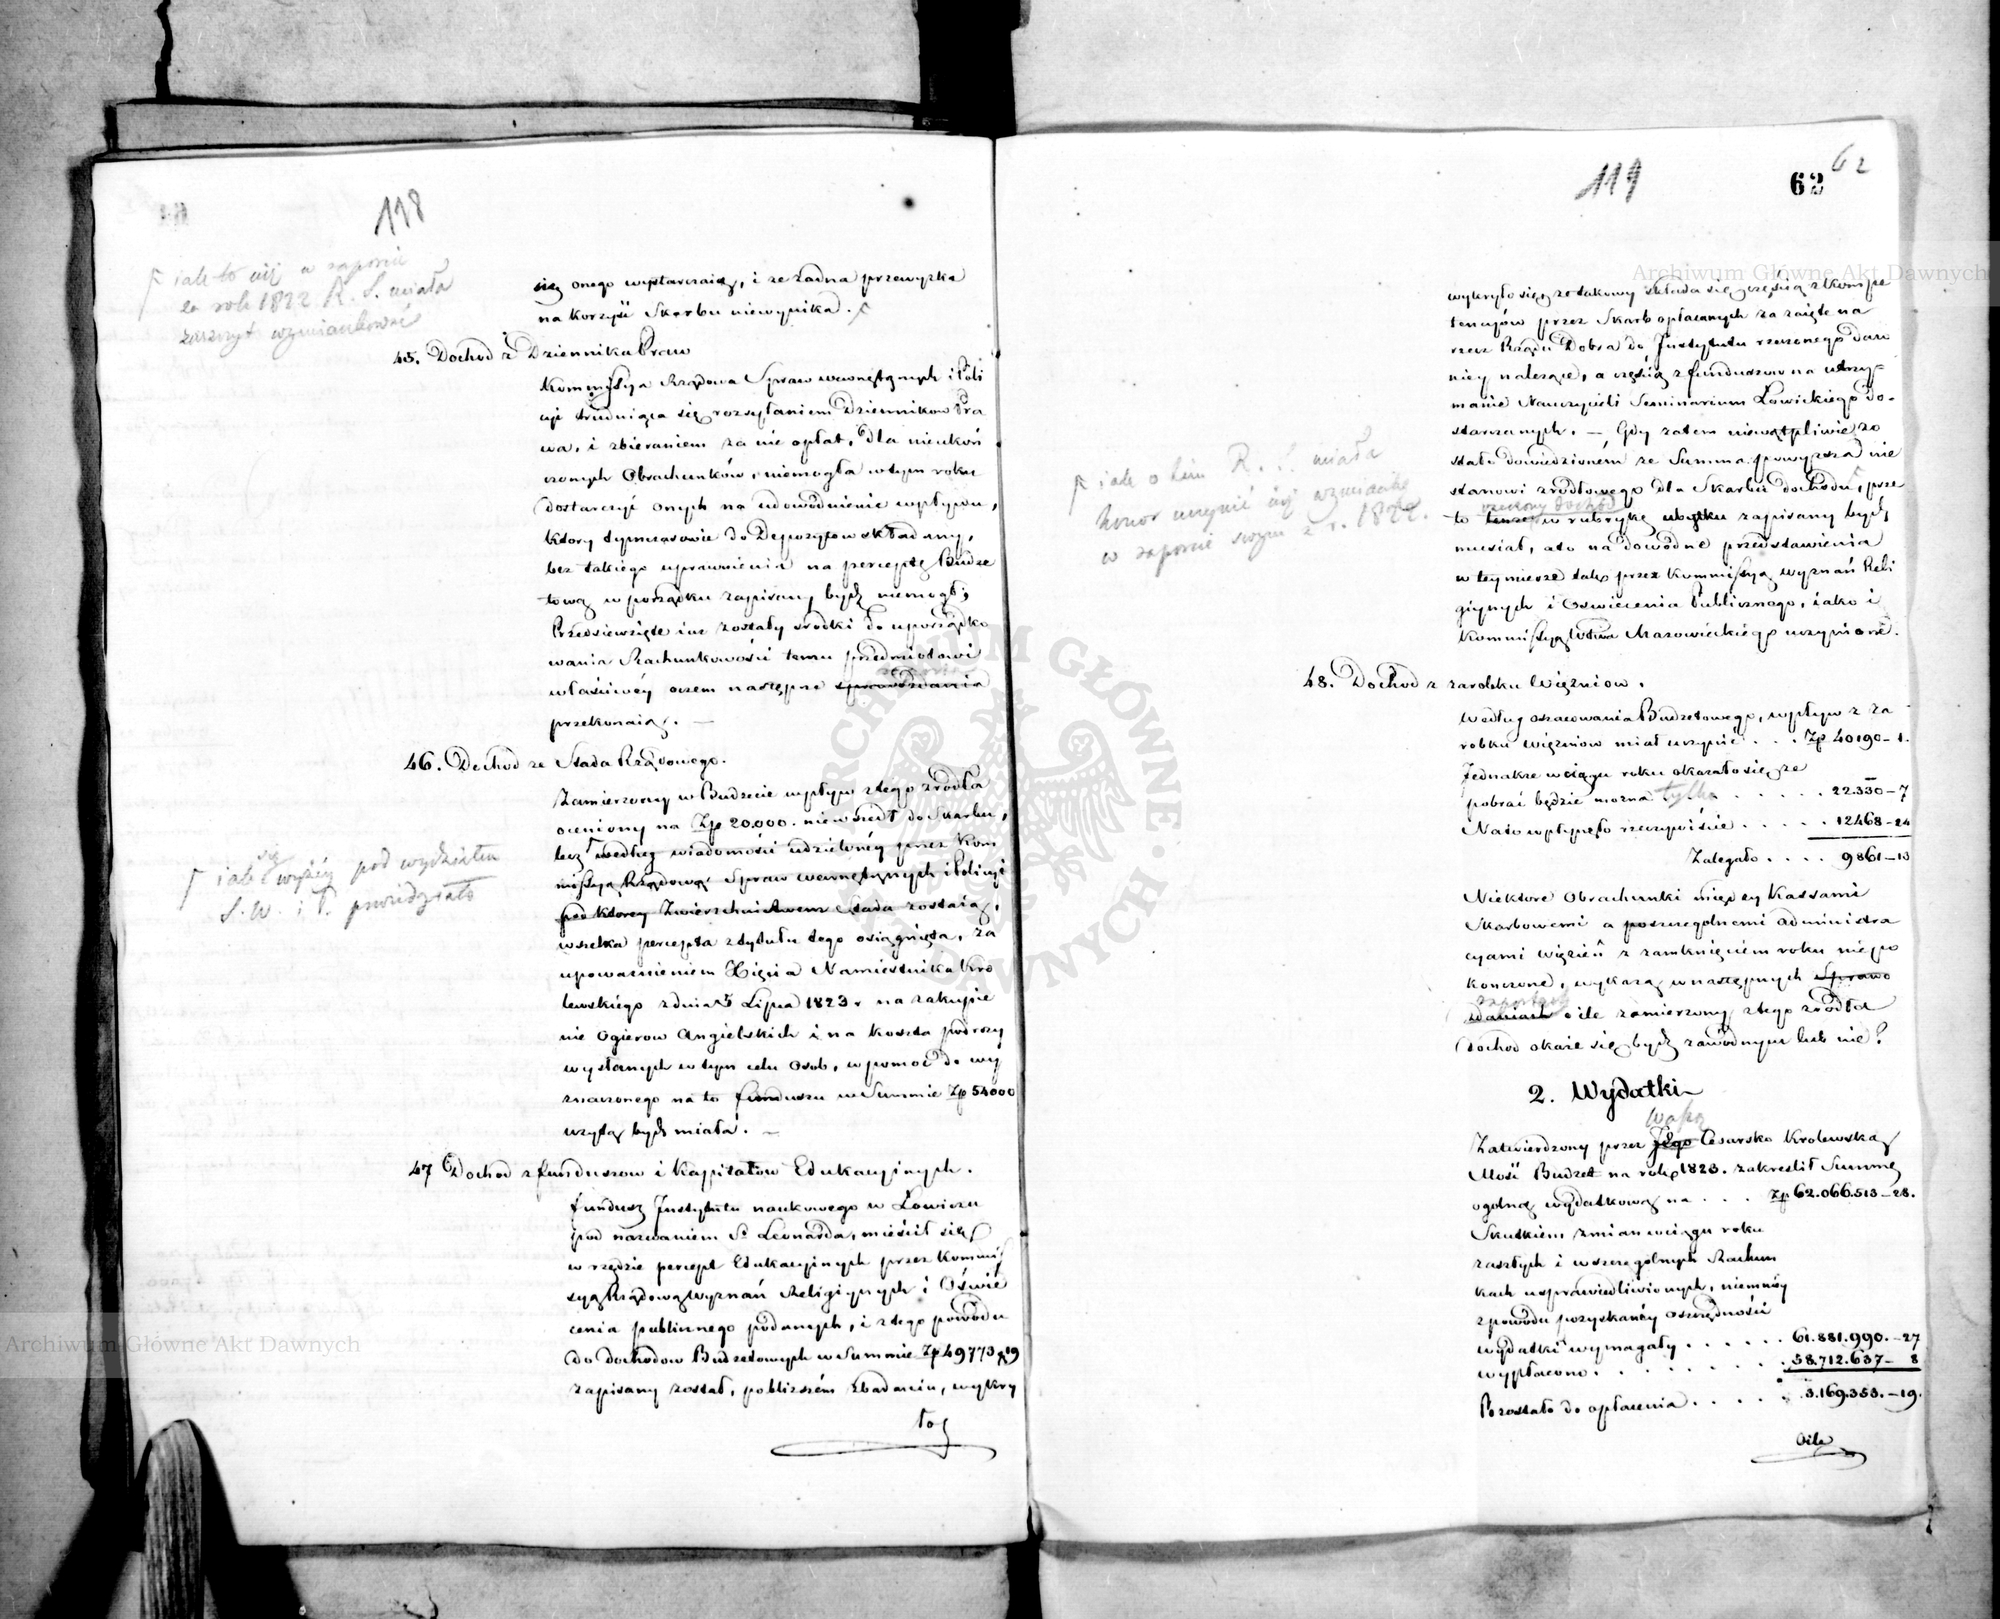 118
iak to iuż w raporcie
za rok 1822 R. S. miała
zaszczyt wzmiankować
się onego wystarczaią, i że żadna przewyżka
na korzyść Skarbu niewynika.
45. Dochod z Dziennika Praw
Kommissya Rządowa Spraw wewnętrznych i Poli
cyi trudniąca się rozsyłaniem Dziennikow Pra
wa, i zbieraniem za nie opłat, dla nieukoń
czonych Obrachunków, niemogła w tym roku
dostarczyć onych na udowodnienie wpływu,
ktory tymczasowie do Depozytow składany,
bez takiego uprawnienia na perceptę Budże
tową w porządku zapisany bydź niemogł;
Przedsiewzięte iuż zostały srodki do uporządko
wania Rachunkowości temu przedmiotowi
właściwéy oczem następne sprawozdania
przekonaią. —
46. Dochod ze Stada Rządowego.
Zamierzony w Budżecie wpływ z tego zrodła
oceniony na Zp 20.000. niewszedł do Skarbu,
lecz według wiadomości udzielonéy przez Kom
missyą Rządową Spraw wewnętrznych i Policyi
pod ktorey Zwierzchnictwem Stada zostaią,
wszelka percepta z tytułu tego osiągnięta, za
upoważnieniem Xięcia Namiestnika Kro
lewskiego z dnia 5 Lipca 1823 r na zakupie
nie Ogierow Angielskich i na koszta podrozy
wysłanych w tym celu Osob, w pomoc do wy
znaczonego na to funduszu w Summie Zp 54000
użytą bydź miała. —
iak się wyżéy pod wydziałem
S. W. i P. powiedziało
47 Dochod z funduszow i Kapitałow Edukacyinych.
fundusz Instytutu naukowego w Łowiczu
pod nazwaniem Sº Leonarda, mieścił się
w rzędzie percept Edukacyinych przez Kommis
syą Rządową Wyznań Religiynych i Oświe
cenia publicznego podanych, i z tego powodu
do dochodow Budżetowych w Summie Zp 49773 19
zapisany został, po bliższém zbadaniu, wykry
ło
119
62
62
wykryło się, że takowy składa się częścią z Kompe
tencyów przez Skarb opłacanych za zaięte na
rzecz Rządu Dobra do Instytutu rzeczonego daw
niey należące, a częścią z funduszow na utrzy=
manie Nauczycieli Seminarium Łowickiego do=
starczanych. — Gdy zatem niewątpliwie zo
stało dowiedzioném że Summa powyższa nie
stanowi zrodłowego dla Skarbu dochodu, prze
rzeczony dochód
to tenże w rubrykę ubytku zapisany bydź
musiał, ato na dowodne przedstawienia
w tey mierze tak przez Kommissyą wyznań Reli
giynych i Oswiecenia Publicznego, iako i
Kommissyą Wdtwa Mazowieckiego uczynione.
iak o tém R. S. miała
honor uczynić iuż wzmiankę
w raporcie swym z r. 1822.
48. Dochod z zarobku Więzniow.
Według oszacowania Budżetowego, wpływ z za
robku więzniow miał uczynić . . . Zp 40190 – 1.
Jednakże w ciągu roku okazało się że
pobrać będzie można tylko . . . . . 22.330 – 7
Na to wpłynęło rzeczywiście . . . . . 12468 – 24
Zalegało . . . . 9861 – 13
Niektore Obrachunki między Kassami
Skarbowemi a poszczególnemi administra
cyami więzień z zamknięciem roku niepo
kończone, wykażą w następnych Sprawo
raportach
zdaniach o ile zamierzony z tego zrodła
dochod okaże się bydź zawodnym lub nie?
2. Wydatki
Waszą
Zatwierdzony przez Jego Cesarsko Krolewską
Mość Budżet na rok 1823. zakreslił Summę
ogolną wydatkową na . . . Zp 62.066.513 – 28.
Skutkiem zmian w ciągu roku
zaszłych i w szczegolnych Rachun
kach usprawiedliwionych, niemnéy
z powodu pozyskanéy oszczędności
wydatki wymagały . . . . . . 61.881.990. – 27
wypłacono . . . . . . . . 58.712.637 – 8
Pozostało do opłacenia . . . . . 3.169.353. – 19.
Oile
Archiwum Główne Akt Dawnych
Archiwum Główne Akt Dawnych
ARCHIWUM GŁÓWNE AKT DAWNYCH